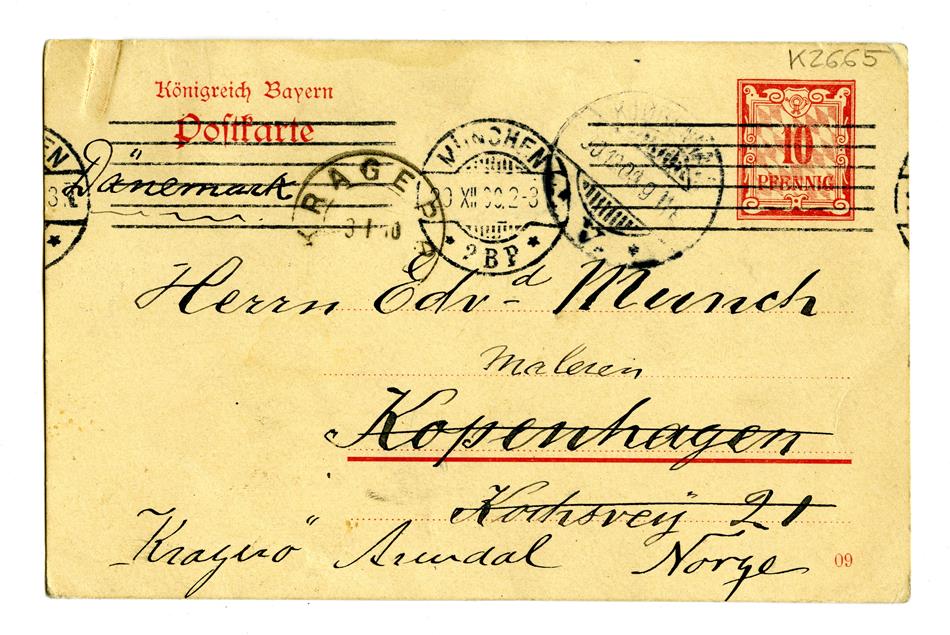 K2665
Königreich Bayern
Postkarte
10
PFENNIG
Dänemark
KRAGERØ
3 I 10
MÜNCHEN
XII 09.2-3
* 2 BP *
Herrn Edv-d Munch
Maleren
Kopenhagen
Kochsvej 21
Kragerö Arendal Norge
09